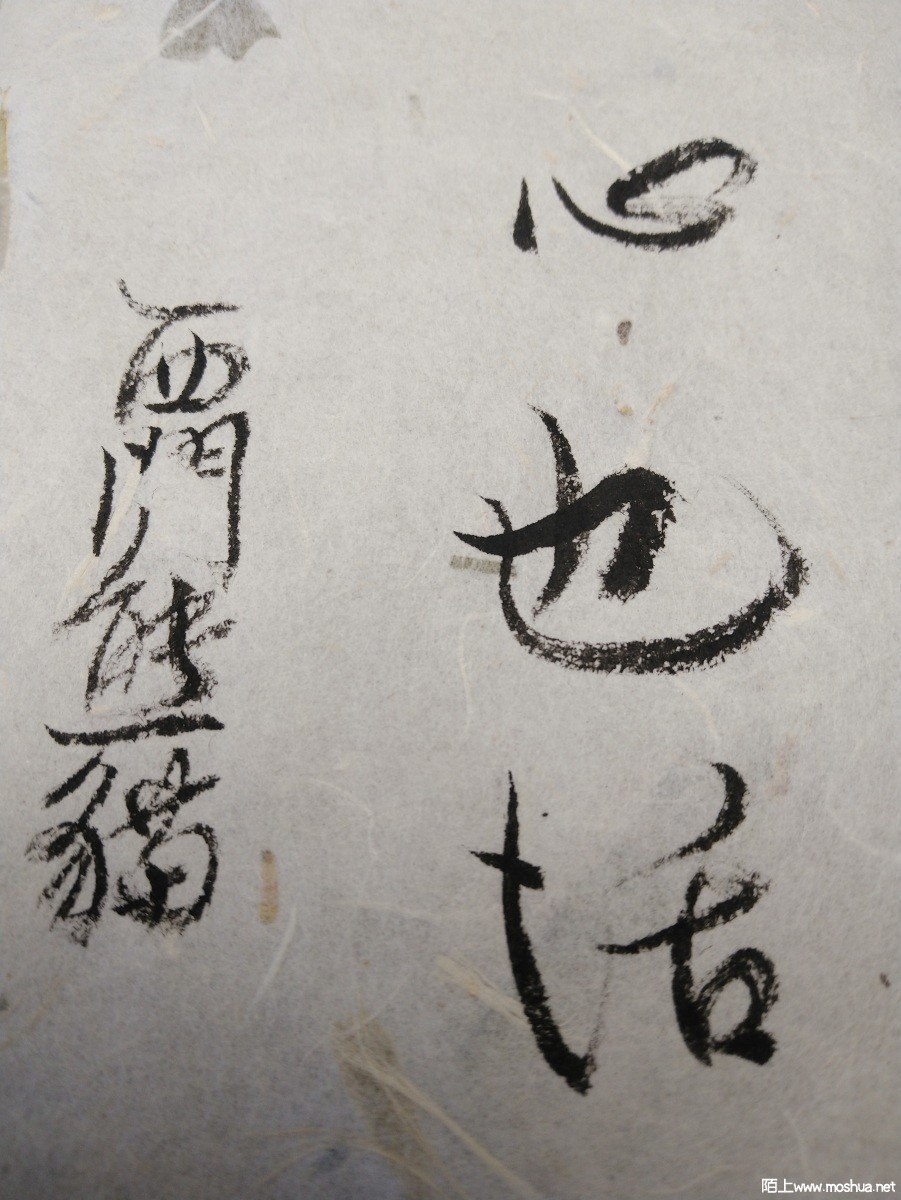 心也活
西門熊貓
陌上www.moshua.net